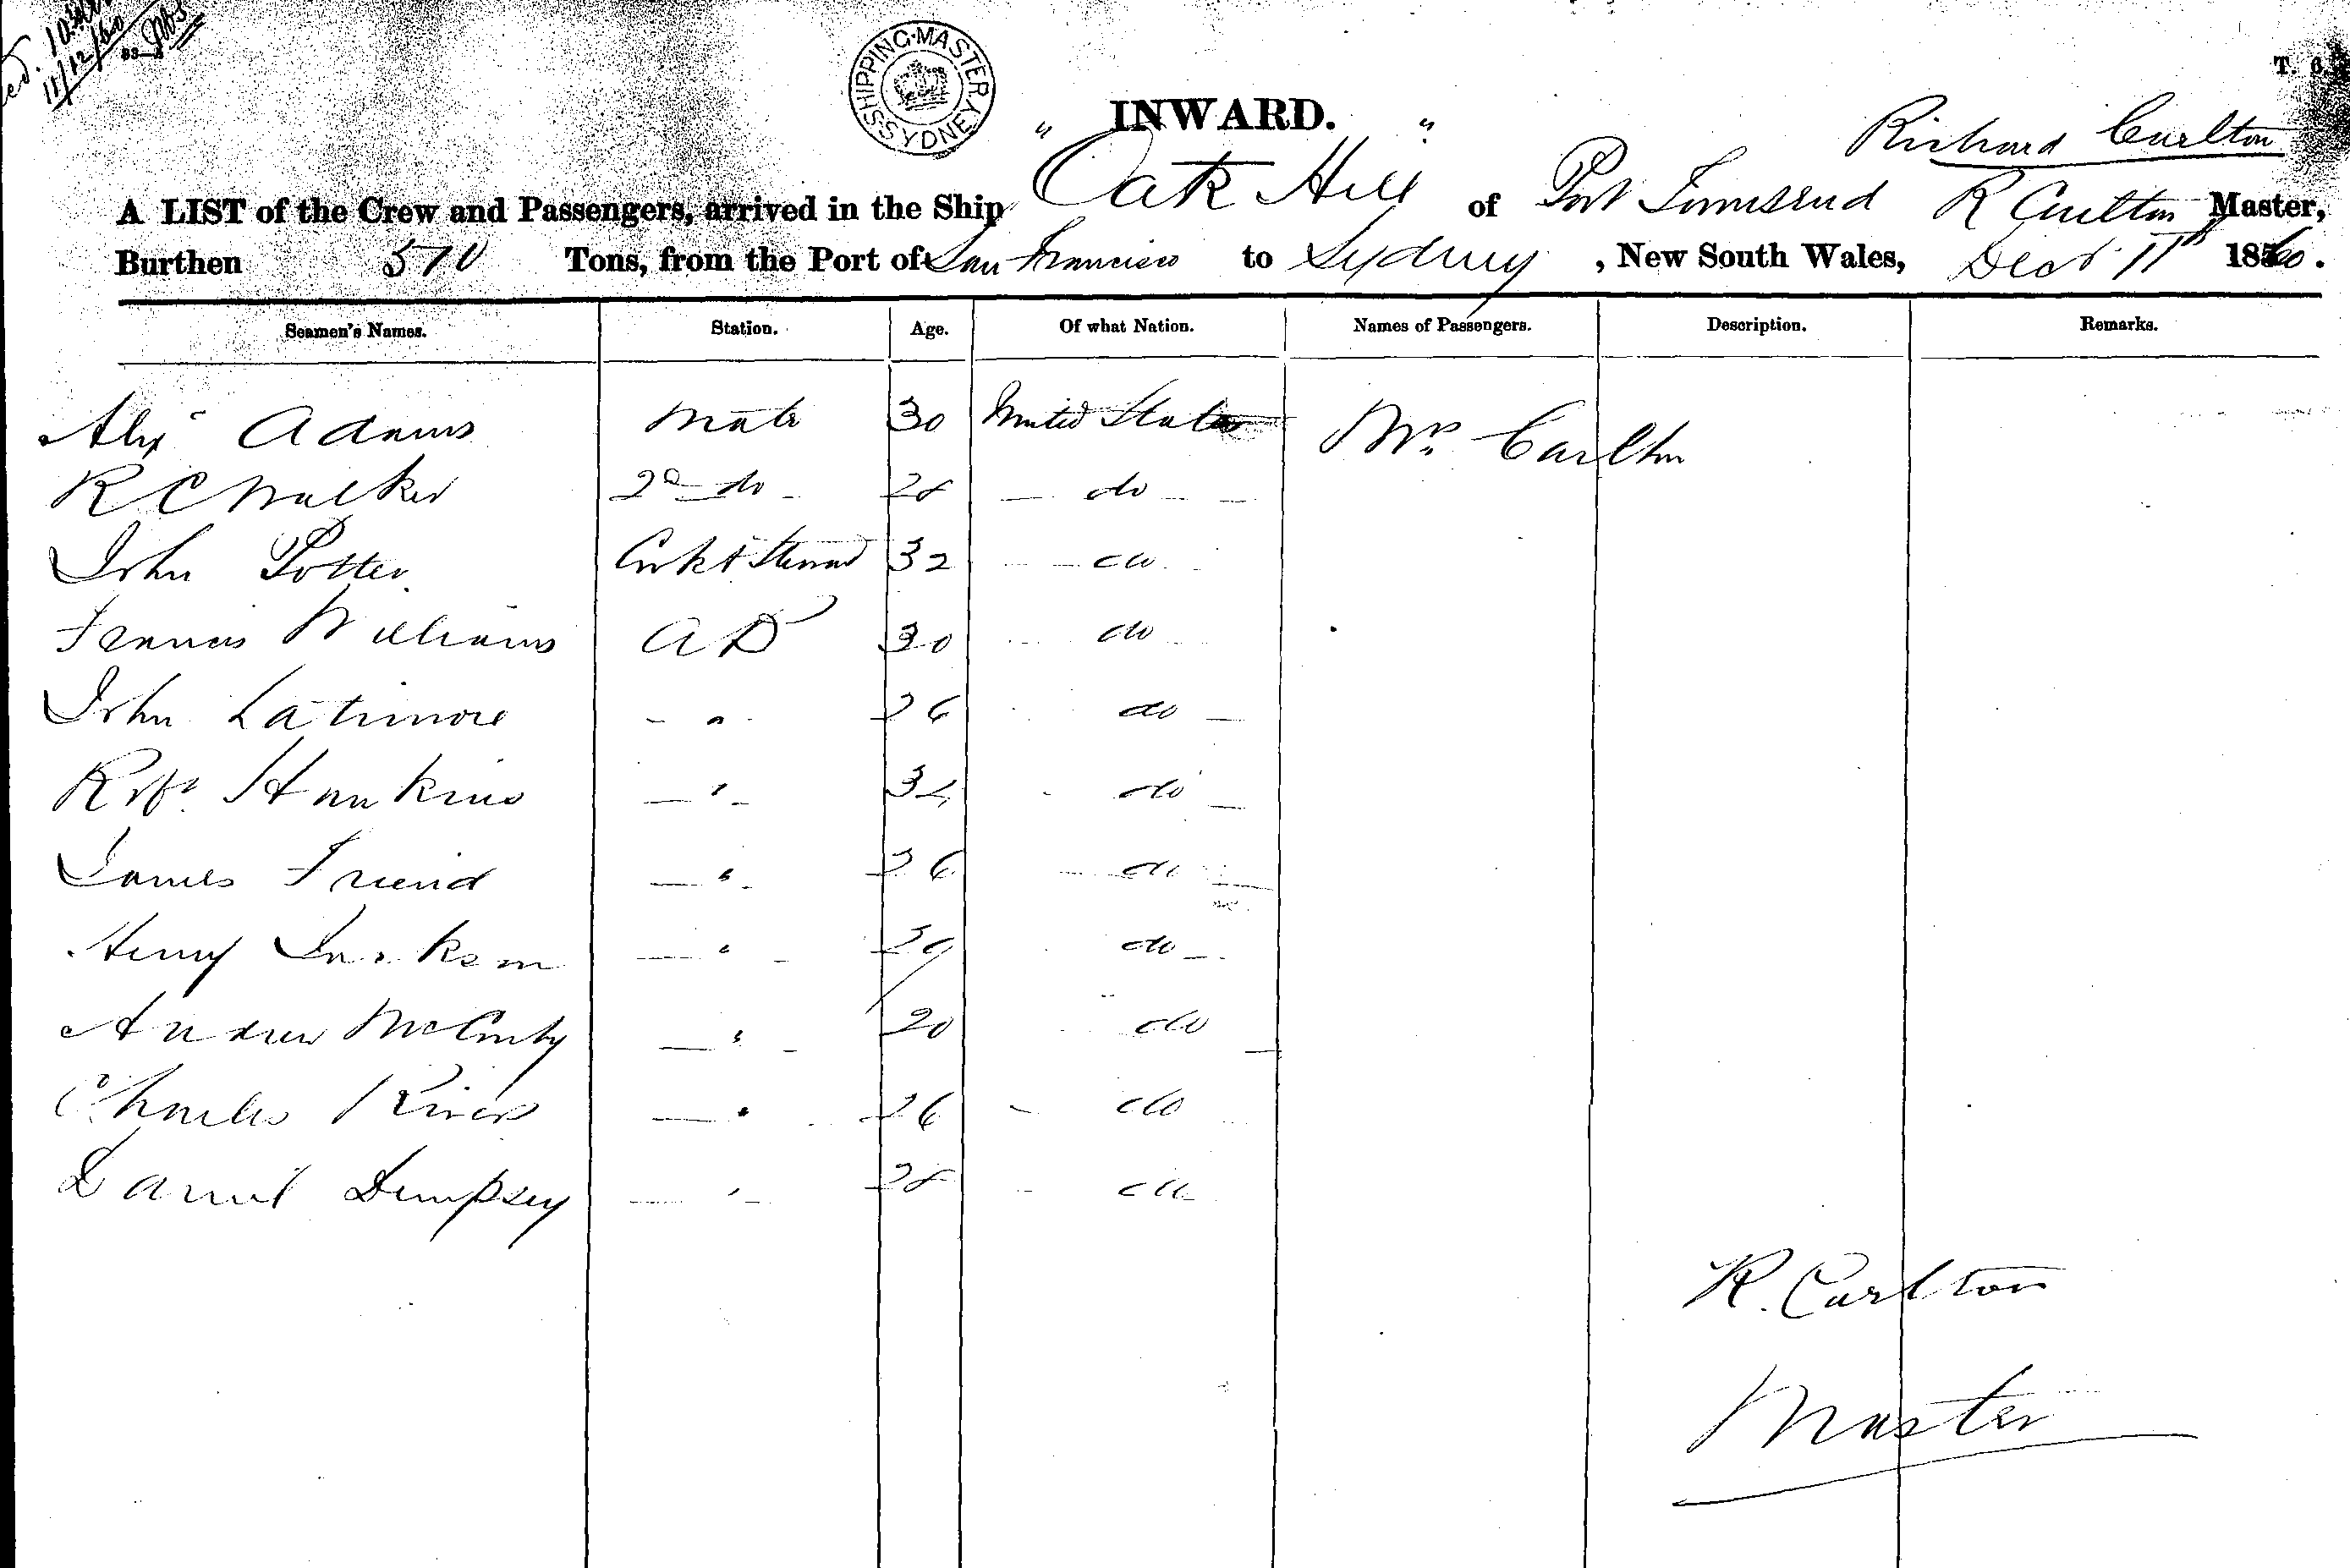 11/12/60
SHIPPING MASTER SYDNEY
T. 6
INWARD.
Richard Carlton
A LIST of the Crew and Passengers, arrived in the Ship "Oak Hill" of Port Townsend R Carlton Master,
Burthen 570 Tons, from the Port of San Francisco to Sydney, New South Wales, Decr 11th 1860.
Seamen's Names. Station. Age. Of what Nation. Names of Passengers. Description. Remarks.
Alexr Adams Mate 30 United States Mrs. Carlton
R C Walker 2d do 28 do
John Potter Cook & Steward 32 do
Francis Williams AB 30 do
John Latimore " 26 do
Robt. Hankins " 34 do
James Friend " 26 do
Henry Jackson " do
Andrew McCarty " 20 do
Charles River " 26 do
Daniel Dempsey " 28 do
R. Carlton
Master